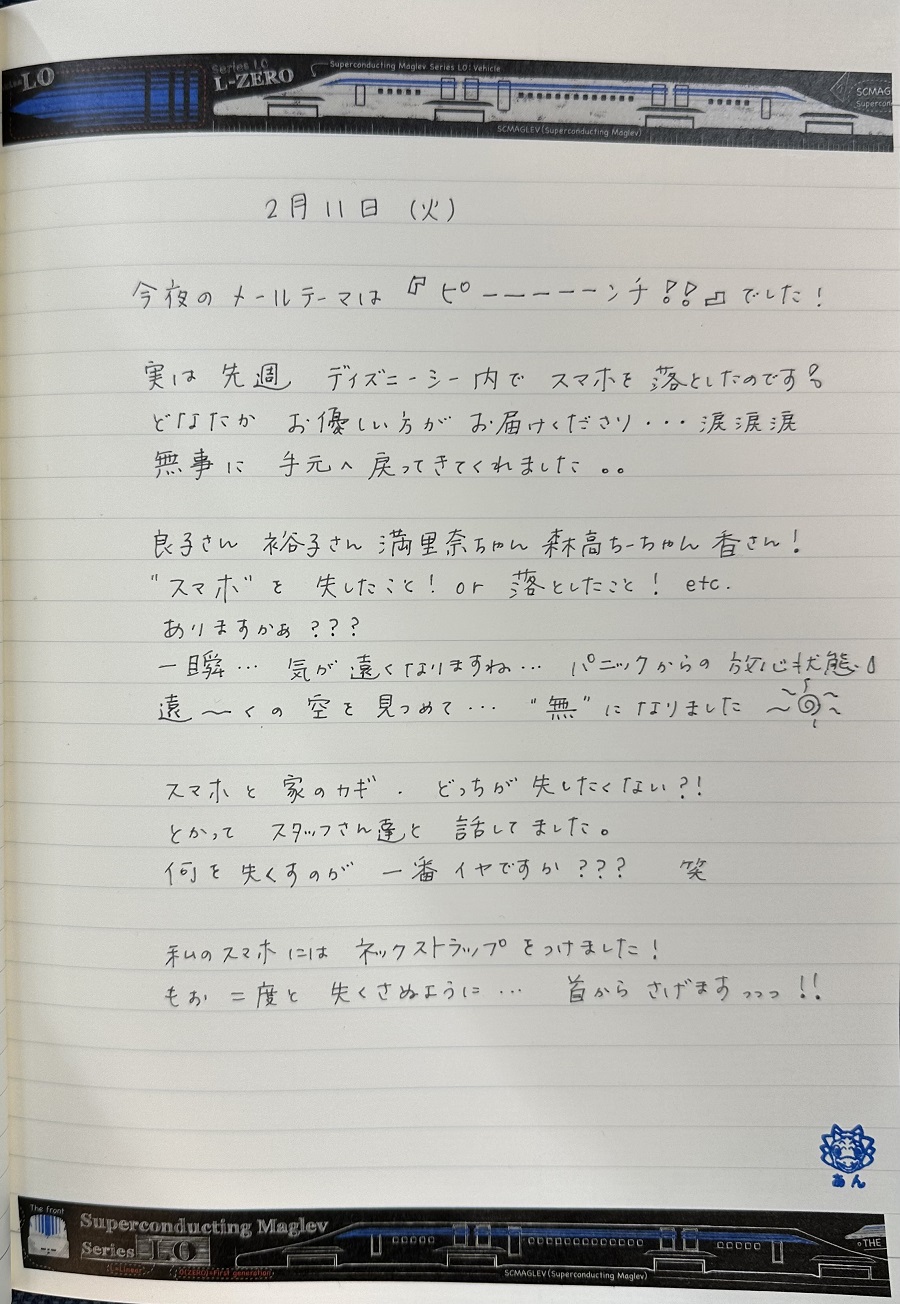 LO
Series LO
L-ZERO
Superconducting Maglev Series LO: Vehicle
SCMAGLEV(Superconducting Maglev)
SCMAG
Supercon
2月11日 (火)
今夜の メールテーマは 『ピーーーーーンチ!!』でした!
実は 先週 ディズニーシー内で スマホを 落としたのです
どなたか お優しい方が お届けくださり・・・涙涙涙
無事に 手元へ 戻ってきてくれました 。。
良子さん 裕子さん 満里奈ちゃん 森高ちーちゃん 香さん!
"スマホ"を 失したこと! or 落としたこと! etc.
ありますかぁ???
一瞬… 気が遠くなりますね… パニックからの 放心状態
遠〜くの 空を 見つめて… "無"に なりました
スマホと 家のカギ. どっちが 失したくない?!
とかって スタッフさん達と 話してました。
何を 失くすのが 一番イヤですか??? 笑
私のスマホには ネックストラップをつけました!
もお 二度と 失くさぬように… 首から さげますっっっ!!
あん
The front
Superconducting Maglev
Series LO
First generation
SCMAGLEV(Superconducting Maglev)
THE